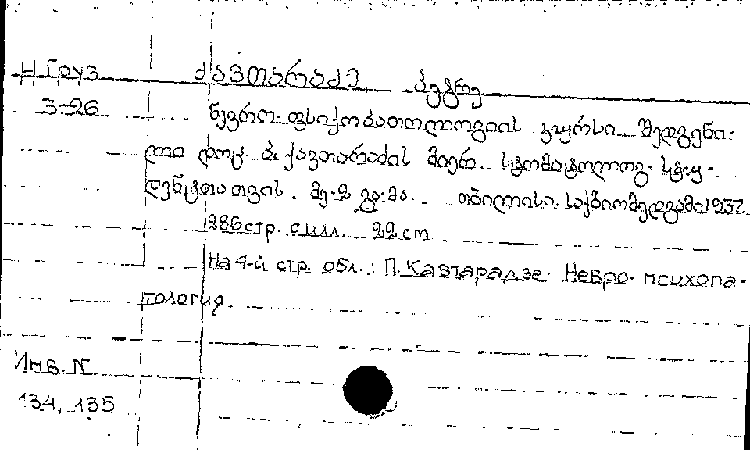 Н Груз ქავთარაძე პეტრე
3-26 ნევრო-ფსიქოპათოლოგიის კურსი შედგენი-
ლი დოც. პ. ქავთარაძის მიერ. სტომატოლოგ. სტუ-
დენტთათვის. მე-2 გა-მა. თბილისი. საქბიომედგამი 1937.
286 стр. с илл. 22 cm
На 4-й стр. обл.: П. Кавтарадзе. Невро-психопа-
тология.
Инв. N
134, 135